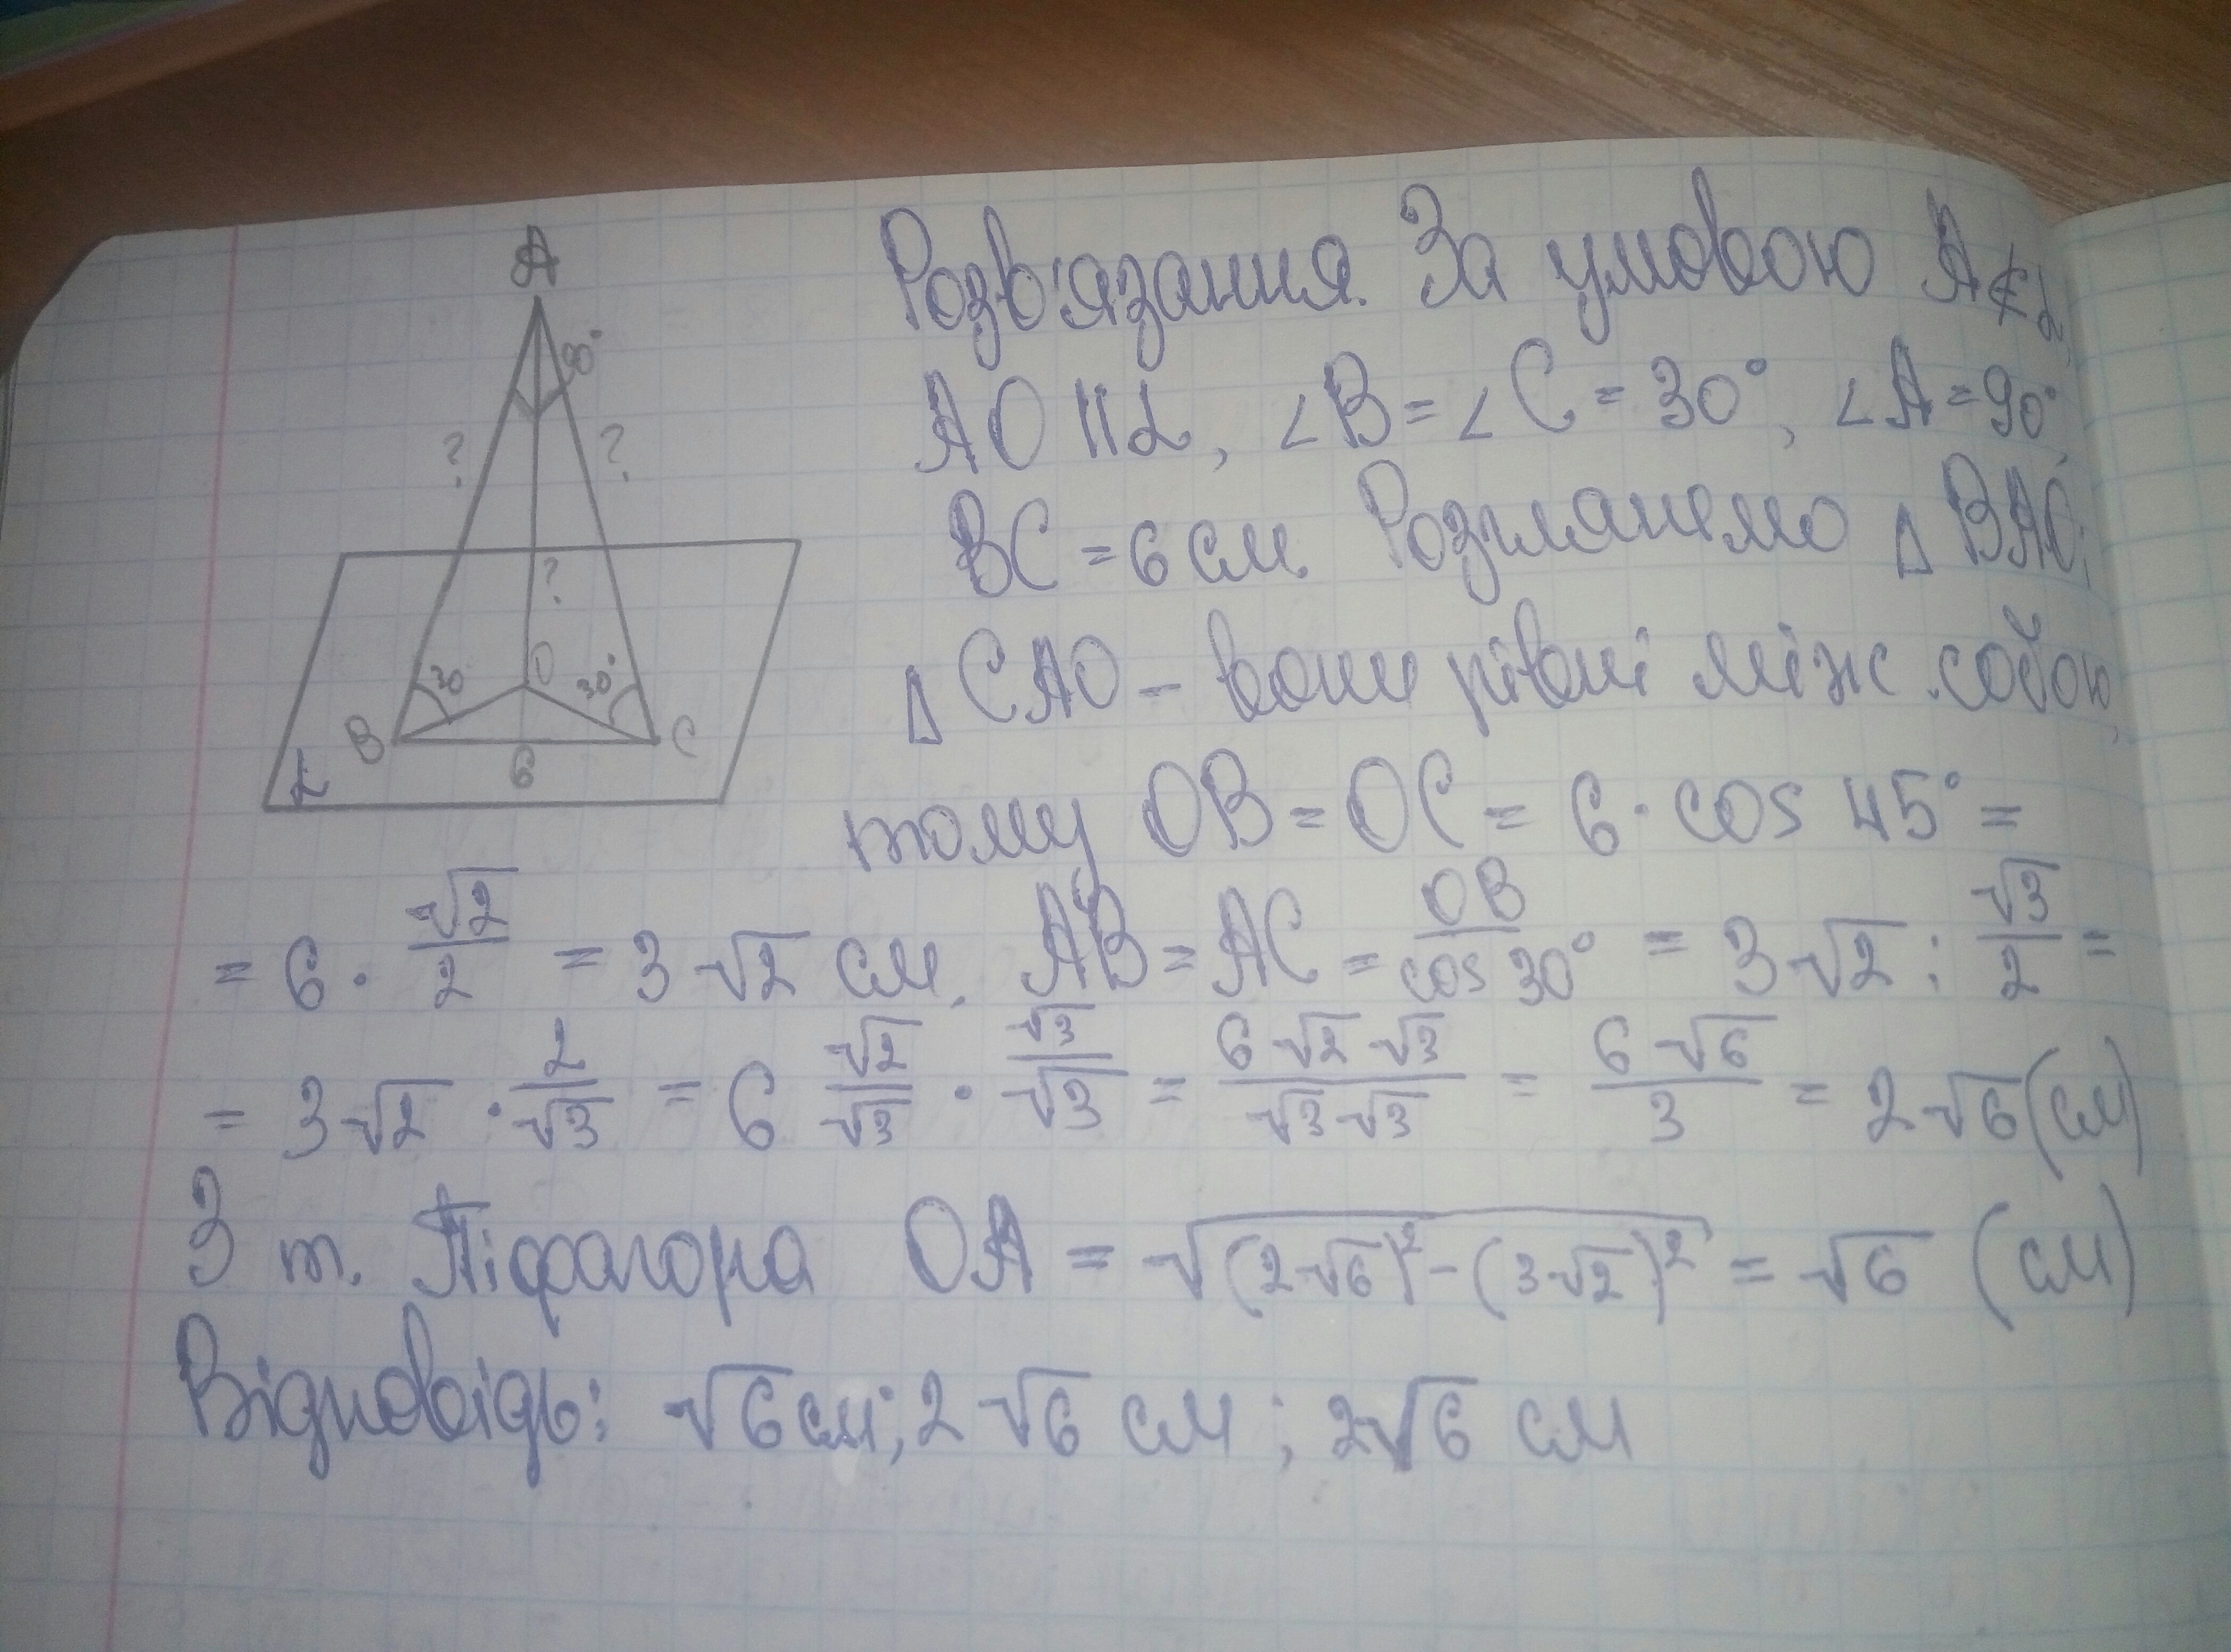 A
90°
?
?
?
O
30
30°
B
C
6
α
Розв'язання. За умовою A∉α,
AO ⊥⊥ α, ∠B = ∠C = 30°, ∠A = 90°,
BC = 6 см. Розглянемо Δ BAO,
Δ CAO – вони рівні між собою,
тому OB = OC = 6 · cos 45° =
= 6 · √2/2 = 3√2 см. AB = AC = OB/cos 30° = 3√2 : √3/2 =
= 3√2 · 2/√3 = 6 √2/√3 · √3/√3 = 6√2√3/√3√3 = 6√6/3 = 2√6 (см)
З т. Піфагора OA = √(2√6)² – (3√2)² = √6 (см)
Відповідь: √6 см; 2√6 см; 2√6 см